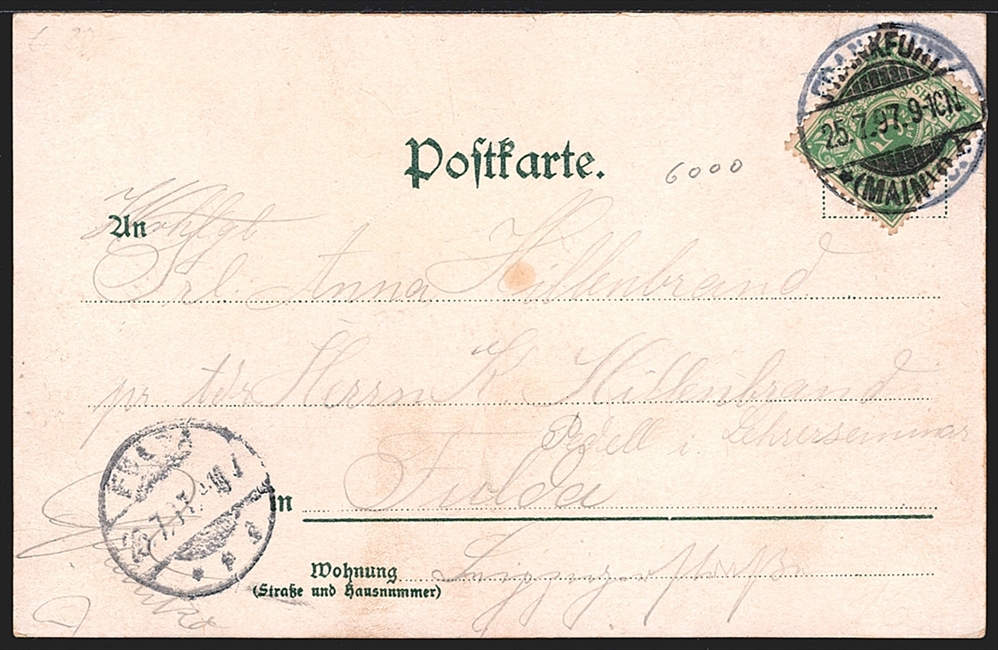 FRANKFURT
25.7.97.9-10N.
*(MAIN)
Postkarte.
6000
An Wohlgb
Frl. Anna Hillenbrand
pr. adr. Herrn K. Hillenbrand
Pedell i. Lehrerseminar
in Fulda
FULDA
Wohnung
(Straße und Hausnummer)